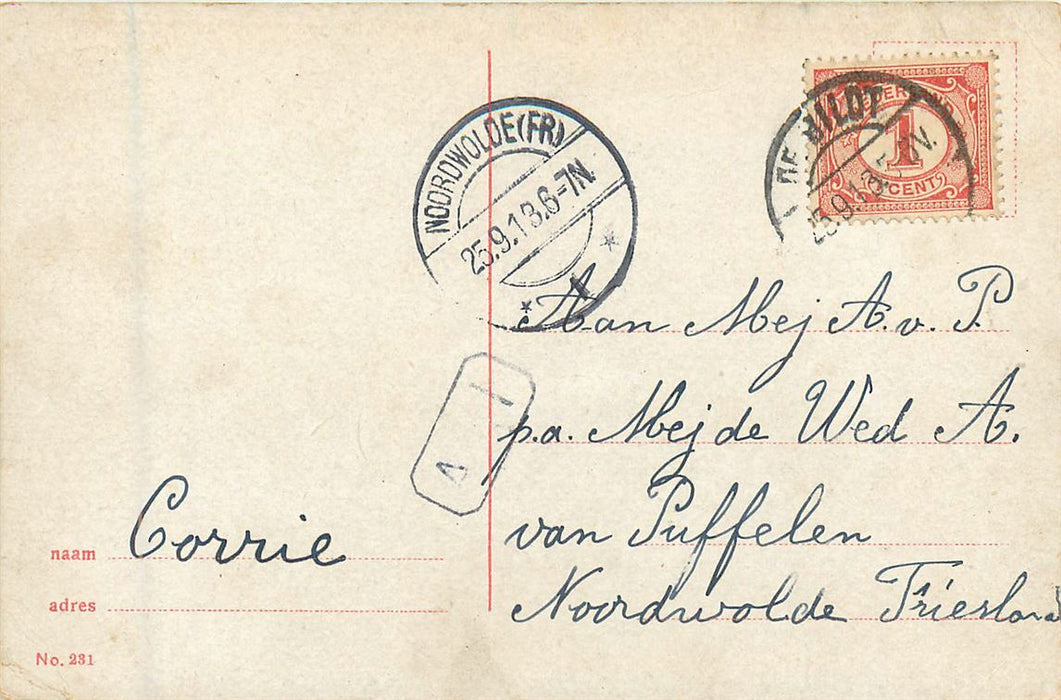 NOORDWOLDE (FR)
25.9.13.6-7N.
1
DE BILDT
25.9.13.
N.
1
CENT
Aan Mej A. v. P.
p.a. Mej de Wed A.
van Puffelen
Noordwolde Friesland
A 1
naam Corrie
adres
No. 231